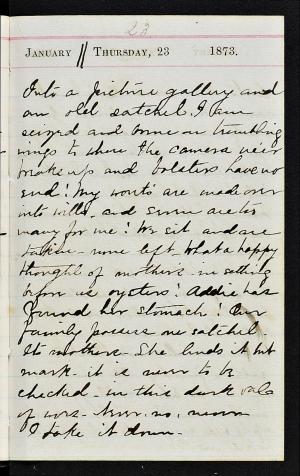 23
January Thursday, 23 1873.
Into a picture gallery and
an old satchel. I am
seized and borne on trembling
wings to where the camera ne'er
breaks ups and bolsters have no
end! My wonts are made over
into wills, and seven acres
many for me! We sit and are
taken none left. What a happy
thought of mothers in setting
before us oysters! Addie has
found her stomach! Our
family possess one satchel.
Its mothers. She lends it but
mark. it is never to be
checked. in this dark vale
of woe. Never. no, never
I take it down.